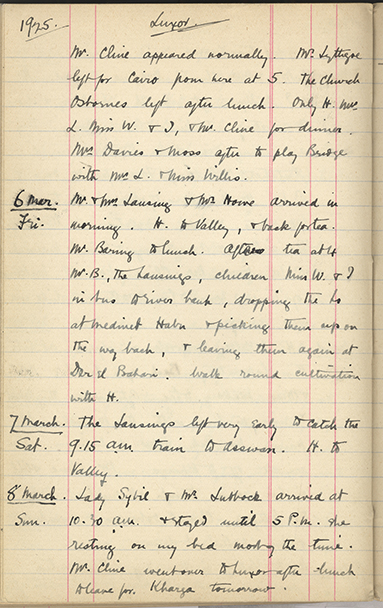 1925. Luxor.
Mr. Cline appeared normally. Mr. Lythgoe
left for Cairo from here at 5. The Church
Osbornes left after lunch. Only H. Mrs
L. Miss W. & I, & Mr. Cline for dinner.
Mrs Davies & Moss after to play Bridge
with Mrs L. & Miss Willis.
6 Mar. Mr & Mrs Lansing & Mr Howe arrived in
Fri. morning. H. to Valley, & back for tea.
Mr. Baring to lunch. After tea at 4
Mr. B., the Lansings, children Miss W. & I
in bus to river bank, dropping the Ls
at Medinet Habu & picking them up on
the way back, & leaving them again at
Der el Bahari. Walk round cultivation
with H.
7 March. The Lansings left very early to catch the
Sat. 9.15 am. train to Asswan. H. to
Valley.
8 March. Lady Sybil & Mr. Lubbock arrived at
Sun. 10.30 a.m. & stayed until 5 P.m. she
resting on my bed most of the time.
Mr. Cline went over to Luxor after lunch
to leave for Kharga tomorrow.